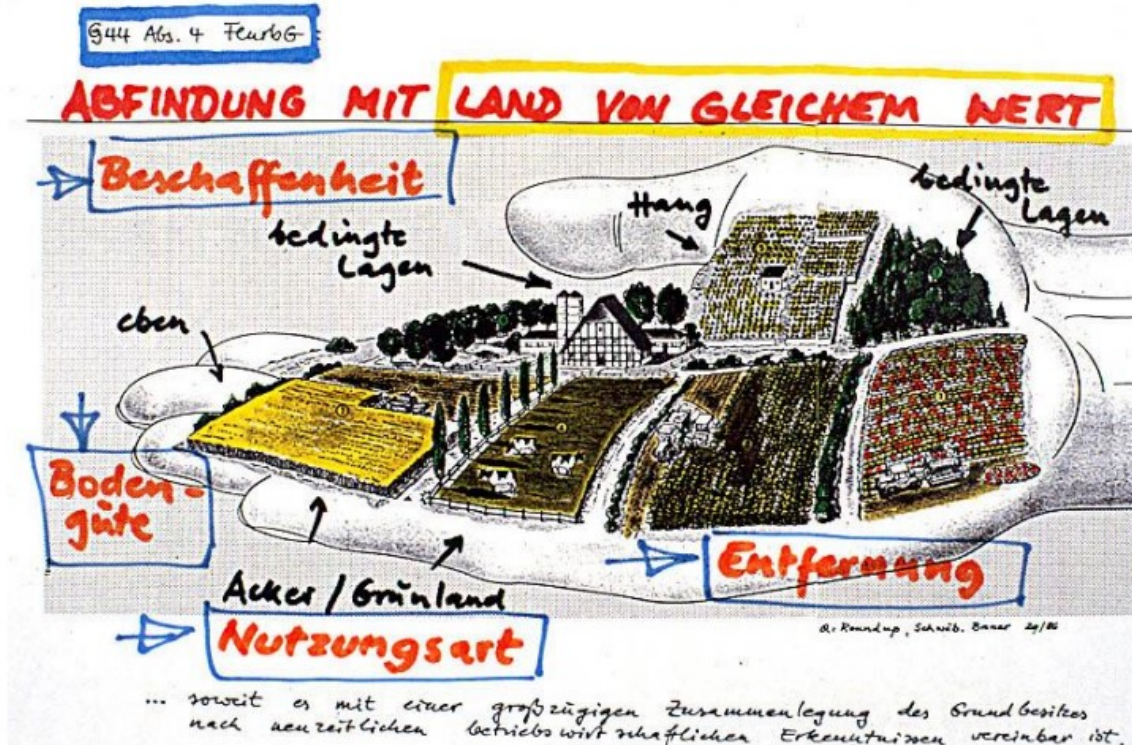 §44 Abs. 4 FlurbG
ABFINDUNG MIT LAND VON GLEICHEM WERT
Beschaffenheit
bedingte
Lagen
Hang
bedingte
Lagen
eben
Boden-
güte
Acker / Grünland
Nutzungsart
Entfernung
Q: Roundup, Schwäb. Bauer 29/86
... soweit es mit einer großzügigen Zusammenlegung des Grundbesitzes
nach neuzeitlichen betriebswirtschaftlichen Erkenntnissen vereinbar ist.